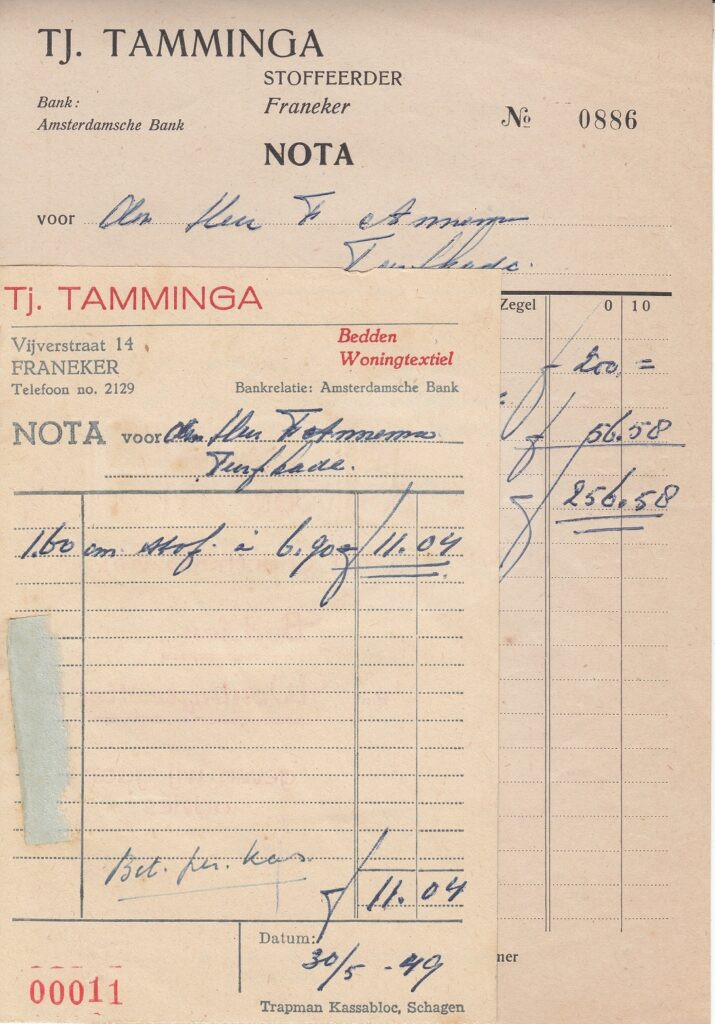 TJ. TAMMINGA
STOFFEERDER
Bank:
Franeker
Amsterdamsche Bank
No 0886
NOTA
voor Den Heer F Annema
Turfkade.
Zegel 0 10
200,=
56.58
256.58
Tj. TAMMINGA
Vijverstraat 14
FRANEKER
Telefoon no. 2129
Bedden
Woningtextiel
Bankrelatie: Amsterdamsche Bank
NOTA voor Den Heer F Annema
Turfkade.
1.60 cm stof. à 6.90 = f 11.04
Bet. per. kas
f 11.04
Datum:
30/5 - 49
00011
Trapman Kassabloc, Schagen
ner